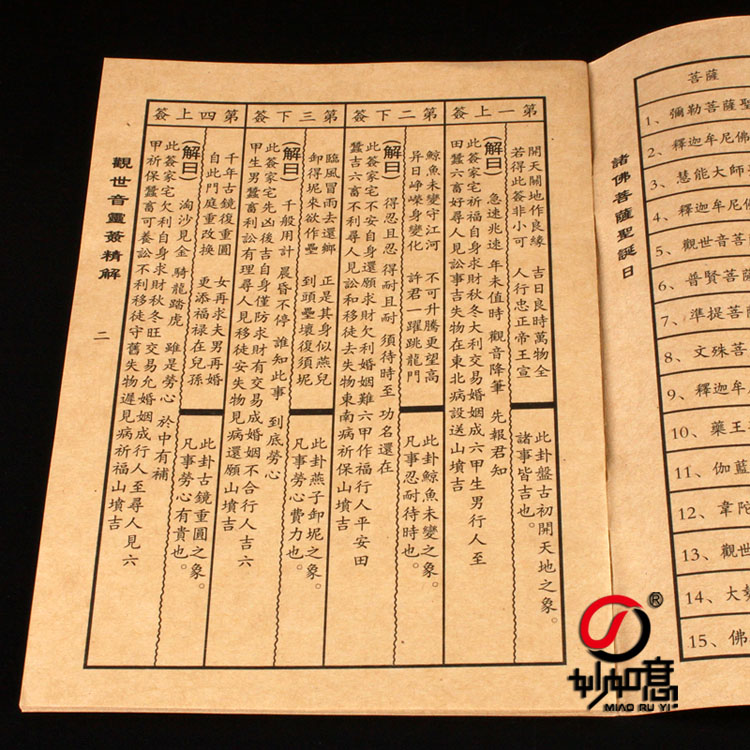 菩薩
1、彌勒菩薩聖
2、釋迦牟尼佛
3、慧能大師
4、釋迦牟尼佛
5、觀世音菩薩
6、普賢菩薩
7、準提菩薩
8、文殊菩
9、釋迦牟
10、藥王
11、伽藍
12、韋陀
13、觀世
14、大勢
15、佛
諸佛菩薩聖誕日
第一上簽
開天關地作良緣 吉日良時萬物全
若得此簽非小可 人行忠正帝王宣
此卦盤古初開天地之象。
諸事皆吉也。
(解曰) 急速兆速 年未值時 觀音降筆 先報君知
此簽家宅祈福自身求財秋冬大利交易婚姻成六甲生男行人至
田蠶六畜好尋人見訟事吉失物在東北病設送山墳吉
第二下簽
鯨魚未變守江河 不可升騰更望高
异日峥嶸身變化 許君一躍跳龍門
此卦鯨魚未變之象。
凡事忍耐待時也。
(解曰) 得忍且忍 得耐且耐 須待時至 功名還在
此簽家宅不安自身還願求財欠利婚姻難六甲作福行人平安田
蠶吉六畜不利尋人見訟和移徒去失物東南病祈保山墳吉
第三下簽
臨風冒雨去還鄉 正是其身似燕兒
卸得坭來欲作壘 到頭壘壞復須坭
此卦燕子卸坭之象。
凡事勞心費力也。
(解曰) 千般用計 晨昏不停 誰知此事 到底勞心
此簽家宅先凶後吉自身僅防求財有交易成婚姻不合行人吉六
甲生男蠶畜利訟有理尋人見移徒安失物見病還願山墳吉
第四上簽
千年古鏡復重圓 女再求夫男再婚
自此門庭重改换 更添福禄在兒孫
此卦古鏡重圓之象。
凡事勞心有貴也。
(解曰) 淘沙見金 騎龍踏虎 雖是勞心 於中有補
此簽家宅欠利自身求財秋冬旺交易允婚姻成行人至尋人見六
甲祈保蠶畜可養訟不利移徒守舊失物遲見病祈福山墳吉
觀世音靈簽精解
二
妙如意
MIAO RU YI
®